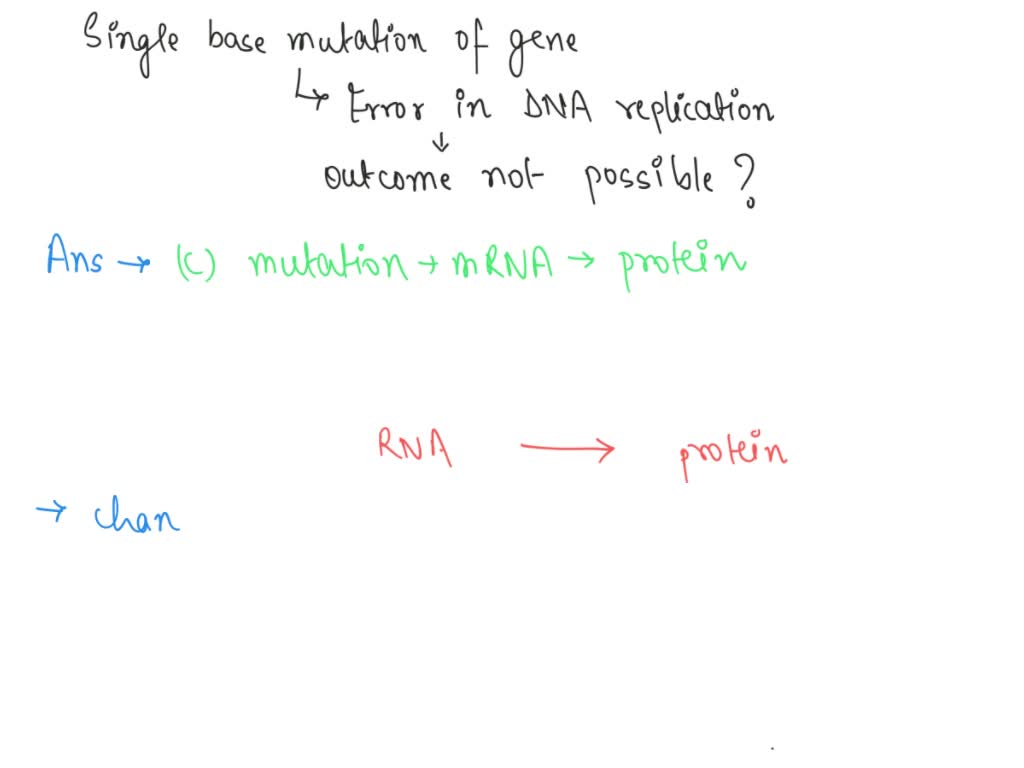 Single base mutation of gene
↳ Error in DNA replication
↓
outcome not possible ?
Ans → (c) mutation → mRNA → protein
RNA → protein
→ chan